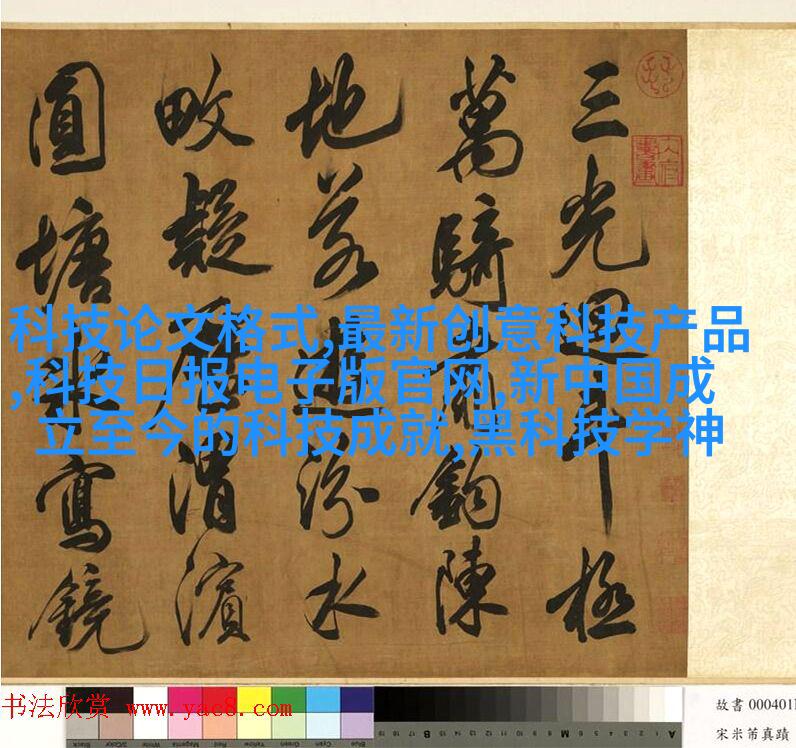 三光迴斗極
萬騎肅鈎陳
地若遊汾水
畋疑歷渭濱
圓塘冰寫鏡
科技论文格式,最新创意科技产品
,科技日报电子版官网,新中国成
立至今的科技成就,黑科技学神
书法欣赏 www.yac8.com
故書 000401
宋米芾真蹟